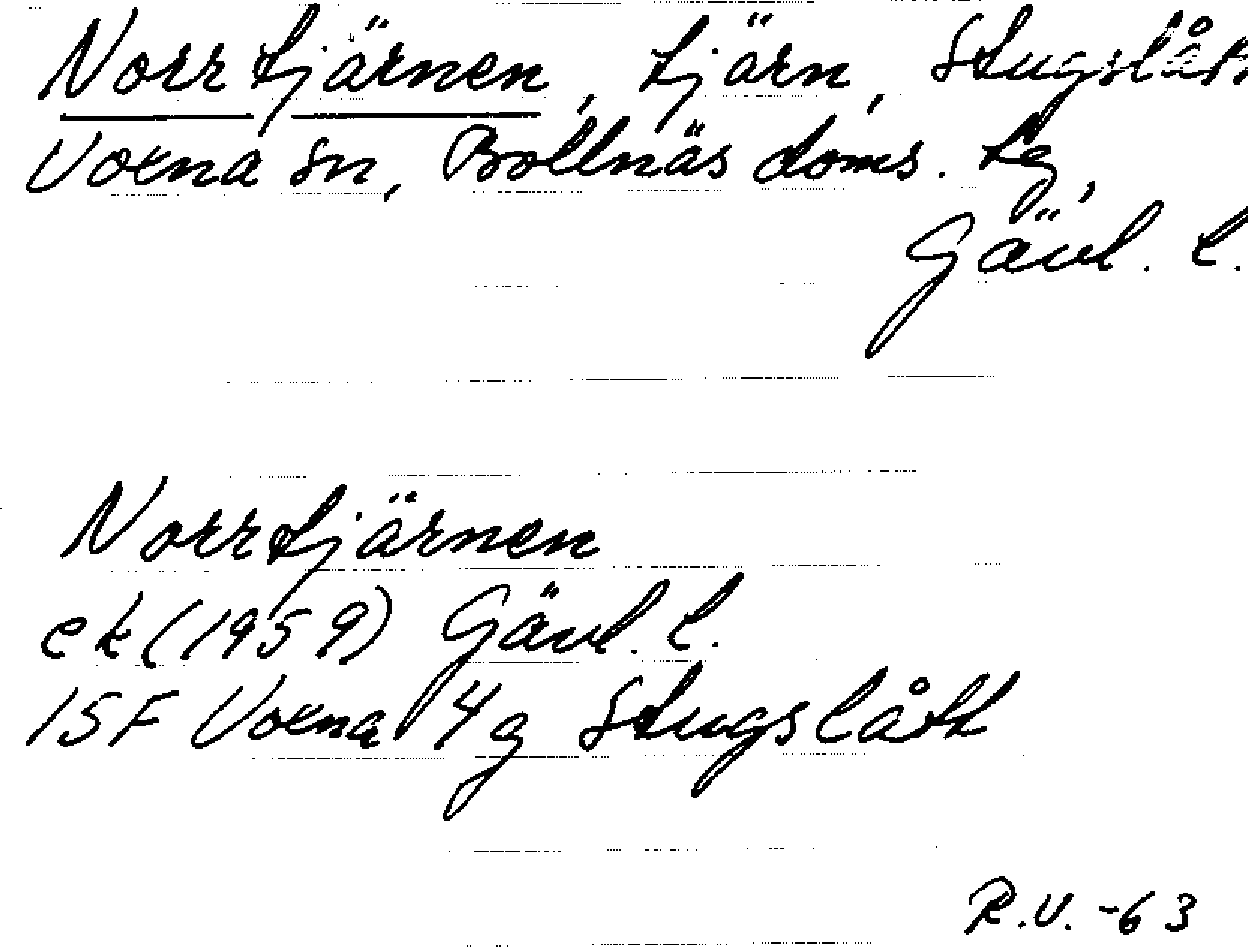 Norrtjärnen, tjärn, Stugslått
Voxna sn, Bollnäs doms. tg,
Gävl. l.
Norrtjärnen
ek (1959) Gävl. l.
15F Voxna 4g Stugslått
R.V. -63